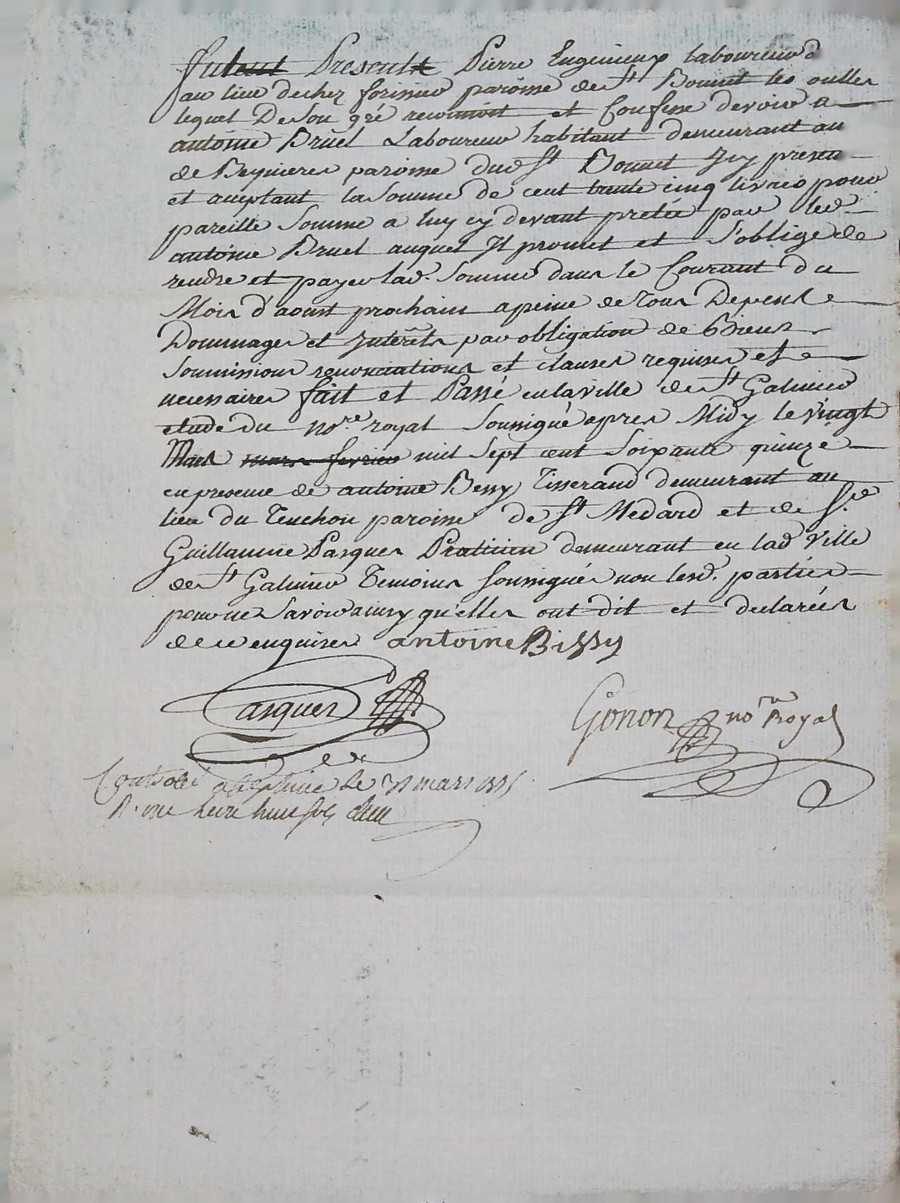 fut Present Pierre Engenieux laboureur d
au lieu de chez forissier paroisse de St Bonnet les oulles
lequel De Son gré reconnoit et Confesse devoir a
antoine Bruel Laboureur habitant demeurant au
de Beynieres paroisse dud St Bonnet Icy present
et aceptant la Somme de cent trente cinq livres pour
pareille Somme a luy cy devant pretée par led
antoine Bruel auquel Il promet et S'oblige de
rendre et payer lad. Somme dans le Courant du
Mois d'aoust prochain a peine de tous Depens
Dommages et Interêts par obligation de Biens
Soumissions renonciations et clauses requises et
necessaires fait et Passé en la ville de St Galmier
etude du nore royal Soussigné apres Midy le vingt
Mars mars fevrier mil Sept cent Soixante quinze
en presence de antoine Bessy Tisserand demeurant au
lieu du Teuchou paroisse de St Medard et de Sr
Guillaume Pasquer Praticien demeurant en lad ville
de St Galmier Temoins Soussignés non lesd. parties
pour ne Savoir ainsy qu'elles ont dit et declarées
de ce enquises antoine Bissy
Pasquer
Gonon nore Royal
Controlé a St Galmier le mars 1775
R. une livre huit sols